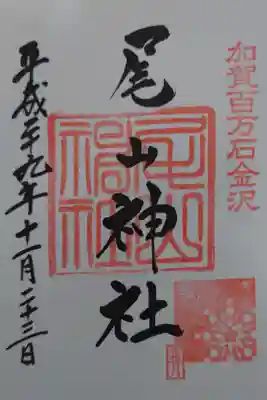 加賀百万石金沢
尾山神社
尾山神社
平成二十九年十一月二十三日